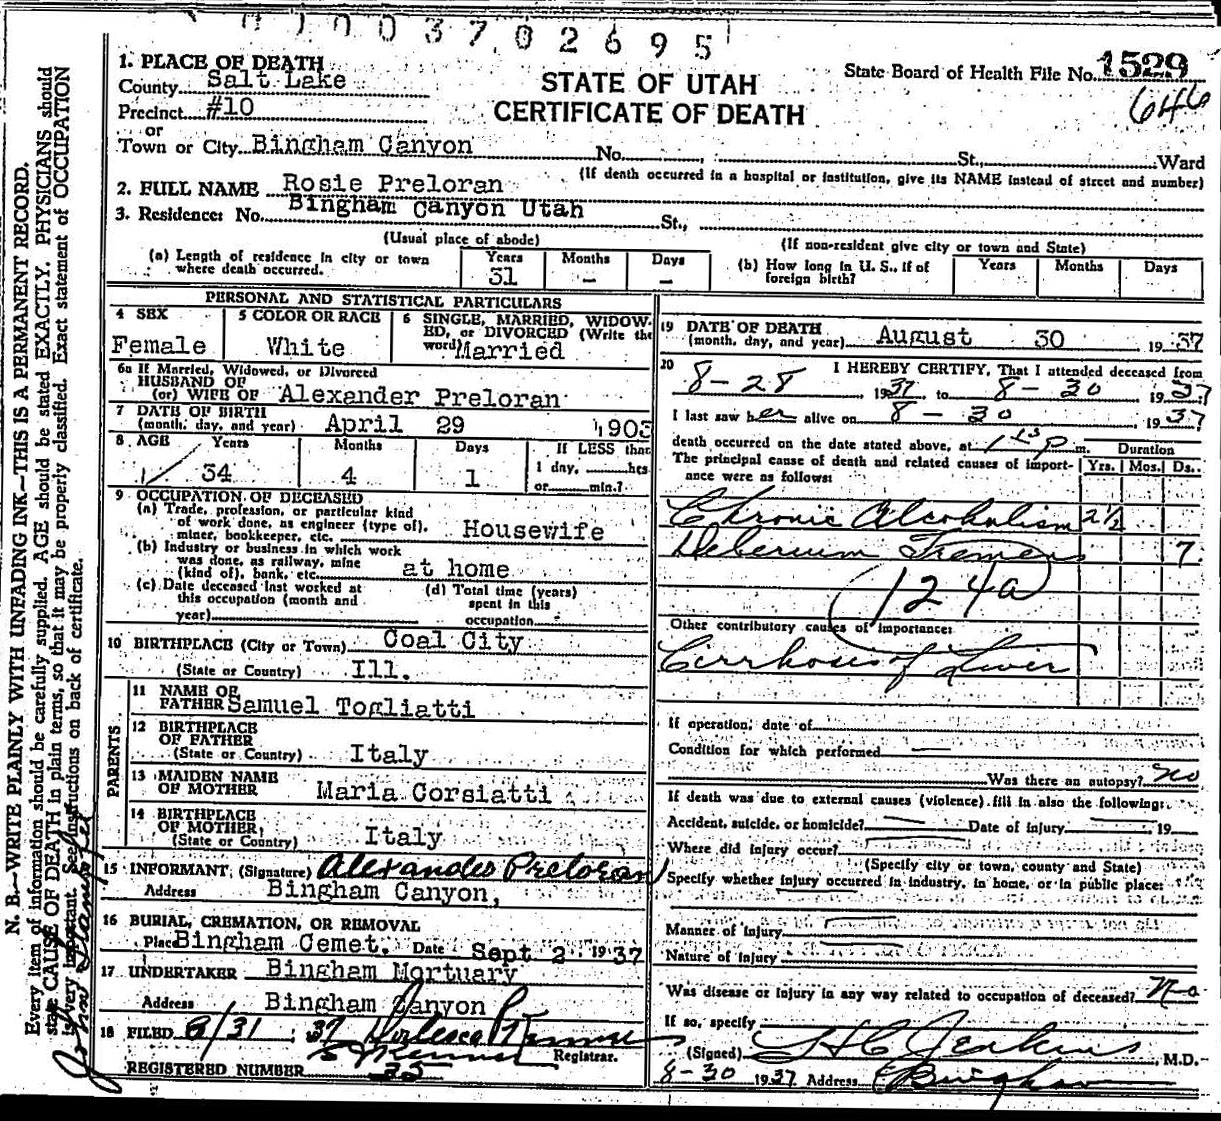 003702695
1. PLACE OF DEATH
County Salt Lake
Precinct #10
or
Town or City Bingham Canyon No. , St., Ward
STATE OF UTAH
CERTIFICATE OF DEATH
State Board of Health File No. 1529
646
(If death occurred in a hospital or institution, give its NAME instead of street and number)
2. FULL NAME Rosie Preloran
3. Residence: No. Bingham Canyon Utah St.,
(Usual place of abode)
(If non-resident give city or town and State)
(a) Length of residence in city or town where death occurred. Years 31 Months - Days -
(b) How long in U. S., if of foreign birth? Years Months Days
PERSONAL AND STATISTICAL PARTICULARS
4 SEX Female
5 COLOR OR RACE White
6 SINGLE, MARRIED, WIDOWED, or DIVORCED (Write the word) Married
6a If Married, Widowed, or Divorced
HUSBAND OF
(or) WIFE OF Alexander Preloran
7 DATE OF BIRTH
(month, day, and year) April 29 1903
8 AGE Years 34 Months 4 Days 1
If LESS than
1 day, hrs
or min.?
9 OCCUPATION OF DECEASED
(a) Trade, profession, or particular kind
of work done, as engineer (type of),
miner, bookkeeper, etc. Housewife
(b) Industry or business in which work
was done, as railway, mine
(kind of), bank, etc. at home
(c) Date deceased last worked at
this occupation (month and
year)
(d) Total time (years)
spent in this
occupation
10 BIRTHPLACE (City or Town) Coal City
(State or Country) Ill.
PARENTS
11 NAME OF
FATHER Samuel Togliatti
12 BIRTHPLACE
OF FATHER
(State or Country) Italy
13 MAIDEN NAME
OF MOTHER Maria Corsiatti
14 BIRTHPLACE
OF MOTHER,
(State or Country) Italy
15 INFORMANT, (Signature) Alexander Preloran
Address Bingham Canyon,
16 BURIAL, CREMATION, OR REMOVAL
Place Bingham Cemet. Date Sept 2 1937
17 UNDERTAKER Bingham Mortuary
Address Bingham Canyon
18 FILED 8/31, 37
Registrar.
REGISTERED NUMBER 35
19 DATE OF DEATH
(month, day, and year) August 30 1937
20 I HEREBY CERTIFY, That I attended deceased from
8-28 1937 to 8-30 1937
I last saw her alive on 8-30 1937
death occurred on the date stated above, at 1 15 p m.
The principal cause of death and related causes of importance were as follows:
Duration
Yrs. Mos. Ds.
Chronic Alcoholism 2 1/2
Deberium Tremens 7
124a
Other contributory causes of importance:
Cirrhosis of Liver
If operation, date of
Condition for which performed —
Was there an autopsy? no
If death was due to external causes (violence) fill in also the following:
Accident, suicide, or homicide? — Date of injury 19
Where did injury occur?
(Specify city or town, county and State)
Specify whether injury occurred in industry, in home, or in public place:
Manner of injury
Nature of injury
Was disease or injury in any way related to occupation of deceased? No
If so, specify
(Signed) H C Jenkins, M.D.
8-30 1937 Address Bingham
N. B.—WRITE PLAINLY WITH UNFADING INK—THIS IS A PERMANENT RECORD.
Every item of information should be carefully supplied. AGE should be stated EXACTLY. PHYSICIANS should
state CAUSE OF DEATH in plain terms, so that it may be properly classified. Exact statement of OCCUPATION
is very important. See instructions on back of certificate.